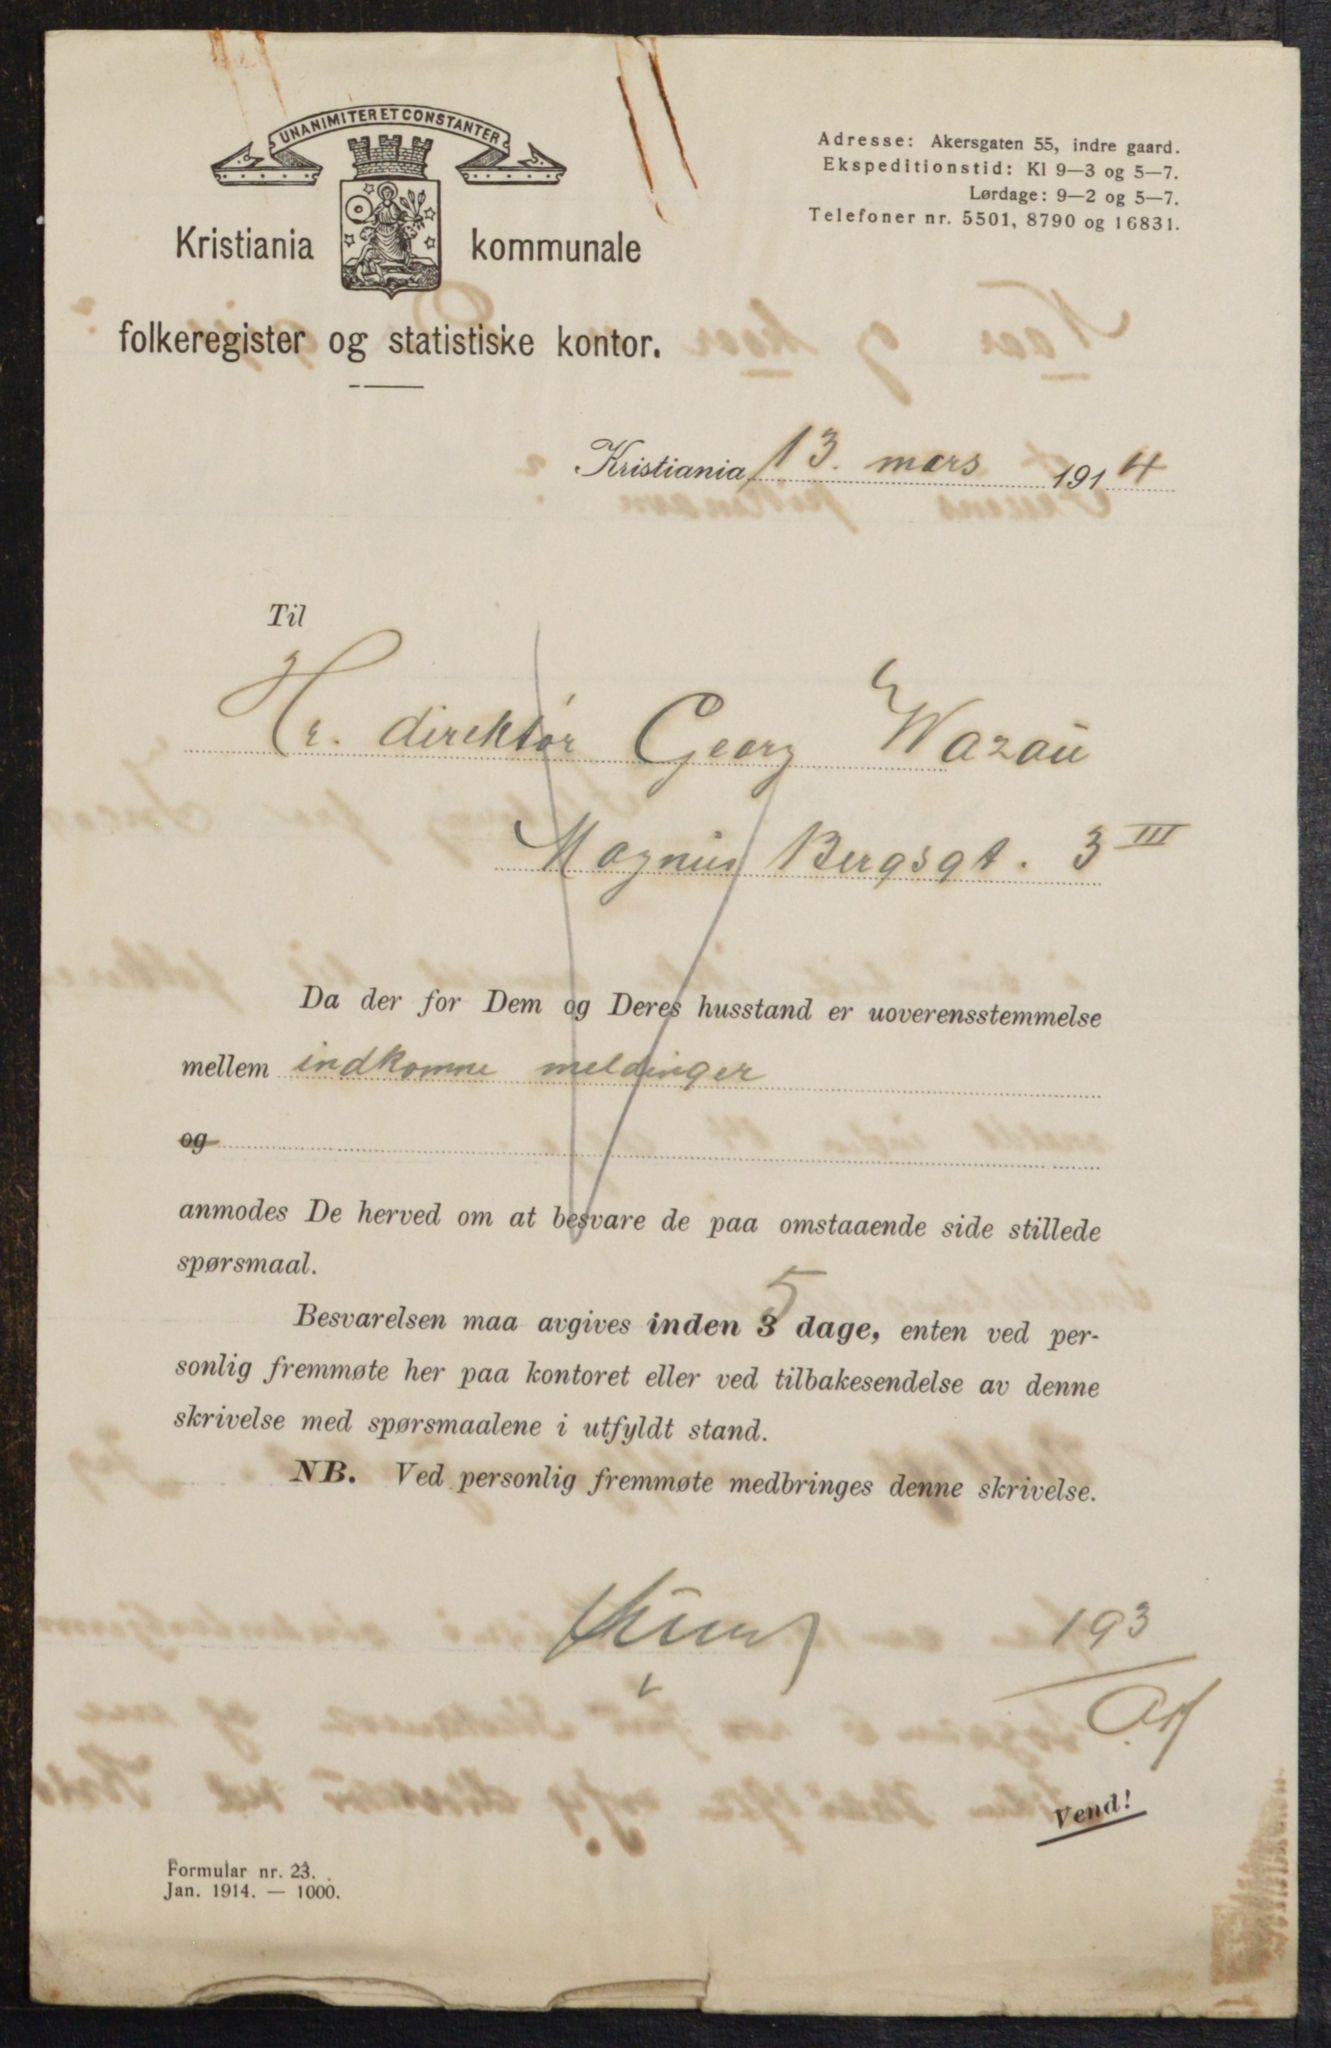 UNANIMITER ET CONSTANTER
Kristiania kommunale
folkeregister og statistiske kontor.
Adresse: Akersgaten 55, indre gaard.
Ekspeditionstid: Kl 9—3 og 5—7.
Lørdage: 9—2 og 5—7.
Telefoner nr. 5501, 8790 og 16831.
Kristiania, 13. mars 1914
Til
Hr. direktør Georg Wazau
Magnus Bergsgt. 3 III
Da der for Dem og Deres husstand er uoverensstemmelse
mellem indkomne meldinger
og
anmodes De herved om at besvare de paa omstaaende side stillede
spørsmaal.
5
Besvarelsen maa avgives inden 3 dage, enten ved per-
sonlig fremmøte her paa kontoret eller ved tilbakesendelse av denne
skrivelse med spørsmaalene i utfyldt stand.
NB. Ved personlig fremmøte medbringes denne skrivelse.
193
Vend!
Formular nr. 23.
Jan. 1914. — 1000.